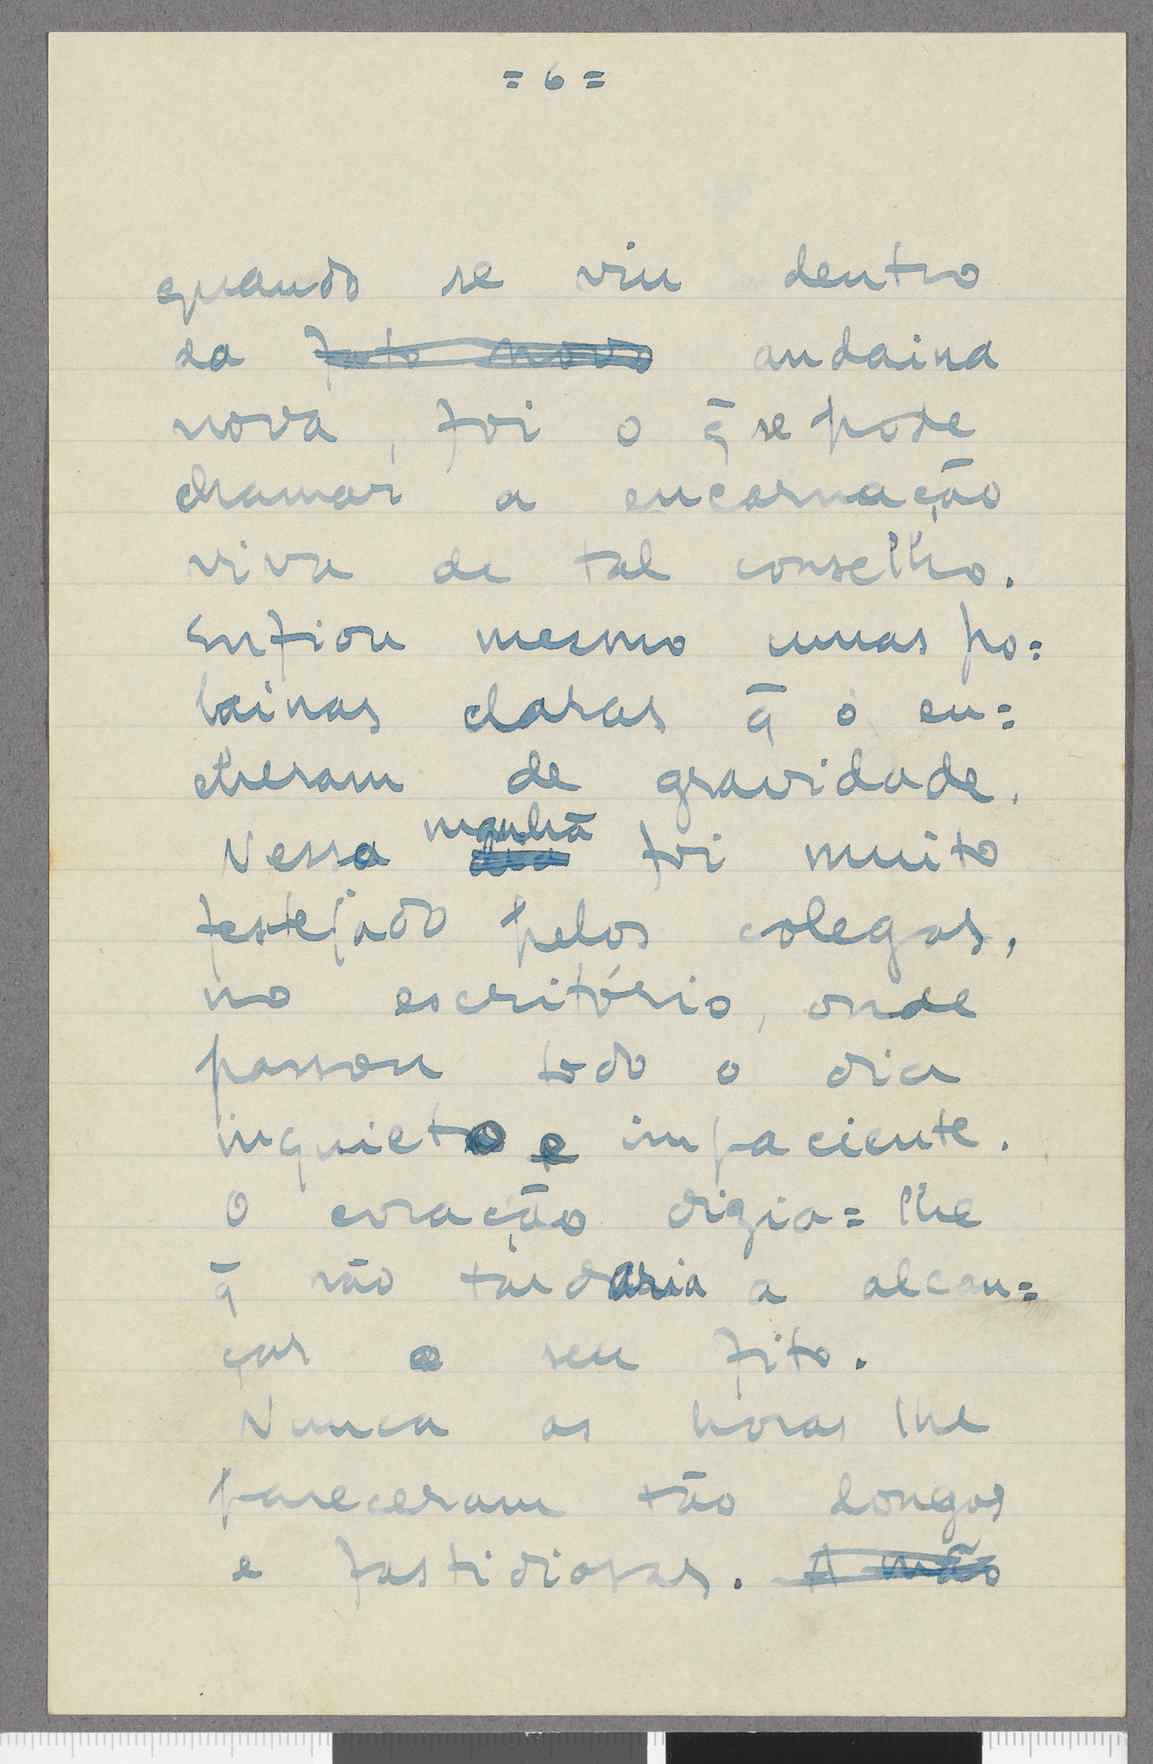 = 6 =
quando se viu dentro
da fato novo andaina
nova, foi o q̄ se pode
chamar a encarnação
viva de tal conselho.
Enfiou mesmo umas po=
lainas claras q̄ o en=
cheram de gravidade.
Nessa manhã dia foi muito
festejado pelos colegas,
no escritório, onde
passou todo o dia
inquieto e impaciente.
O coração dizia=lhe
q̄ não tardaria a alcan=
çar o seu fito.
Nunca as horas lhe
pareceram tão longas
e fastidiosas. A mão